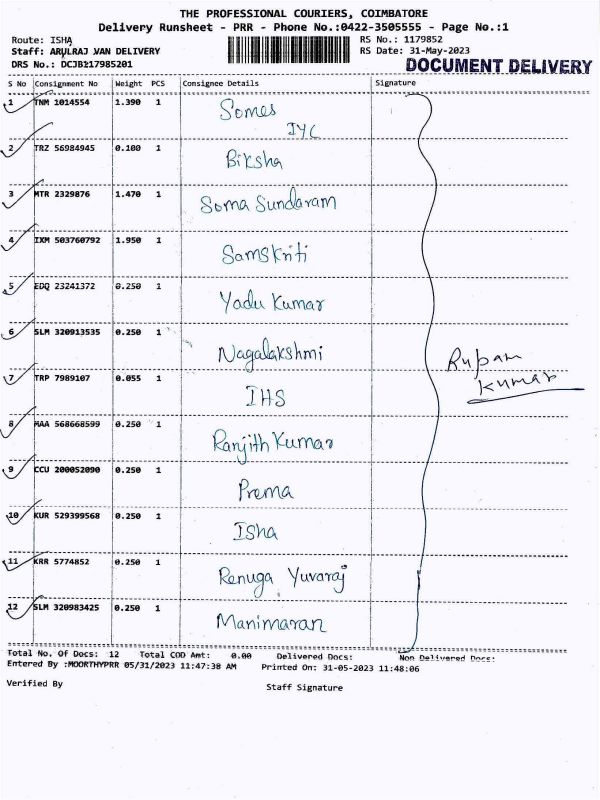 THE PROFESSIONAL COURIERS, COIMBATORE
Delivery Runsheet - PRR - Phone No.:0422-3505555 - Page No.:1
Route: ISHA
RS No.: 1179852
Staff: ARULRAJ VAN DELIVERY
RS Date: 31-May-2023
DRS No.: DCJB117985201
DOCUMENT DELIVERY
S No Consignment No Weight PCS Consignee Details Signature
1 TNM 1014554 1.390 1 Somes
IYC
2 TRZ 56984945 0.100 1 Biksha
3 MTR 2329876 1.470 1 Soma Sundaram
4 IXM 503760792 1.950 1 Samskriti
5 EDQ 23241372 0.250 1 Yadu Kumar
6 SLM 320913535 0.250 1 Nagalakshmi
7 TRP 7989107 0.055 1 IHS
8 MAA 568668599 0.250 1 Ranjith Kumar
9 CCU 200052090 0.250 1 Prema
10 KUR 529399568 0.250 1 Isha
11 KRR 5774852 0.250 1 Renuga Yuvaraj
12 SLM 320983425 0.250 1 Manimaran
Rupam
Kumar
Total No. Of Docs: 12 Total COD Amt: 0.00 Delivered Docs: Non Delivered Docs:
Entered By :MOORTHYPRR 05/31/2023 11:47:38 AM Printed On: 31-05-2023 11:48:06
Verified By Staff Signature